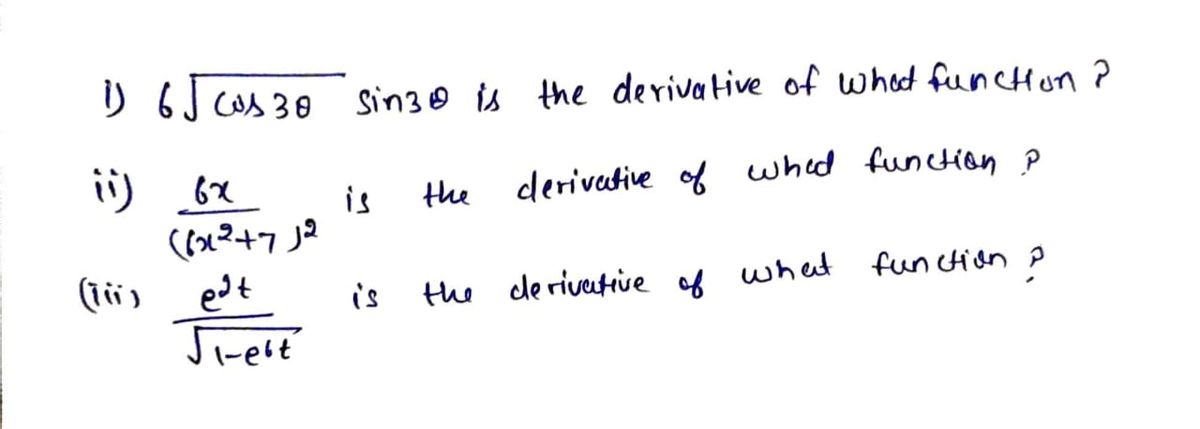 i) 6√cos3θ sin3θ is the derivative of what function?
ii) 6x/(6x²+7)² is the derivative of what function?
(iii) e²ᵗ/√1-e⁶ᵗ is the derivative of what function?